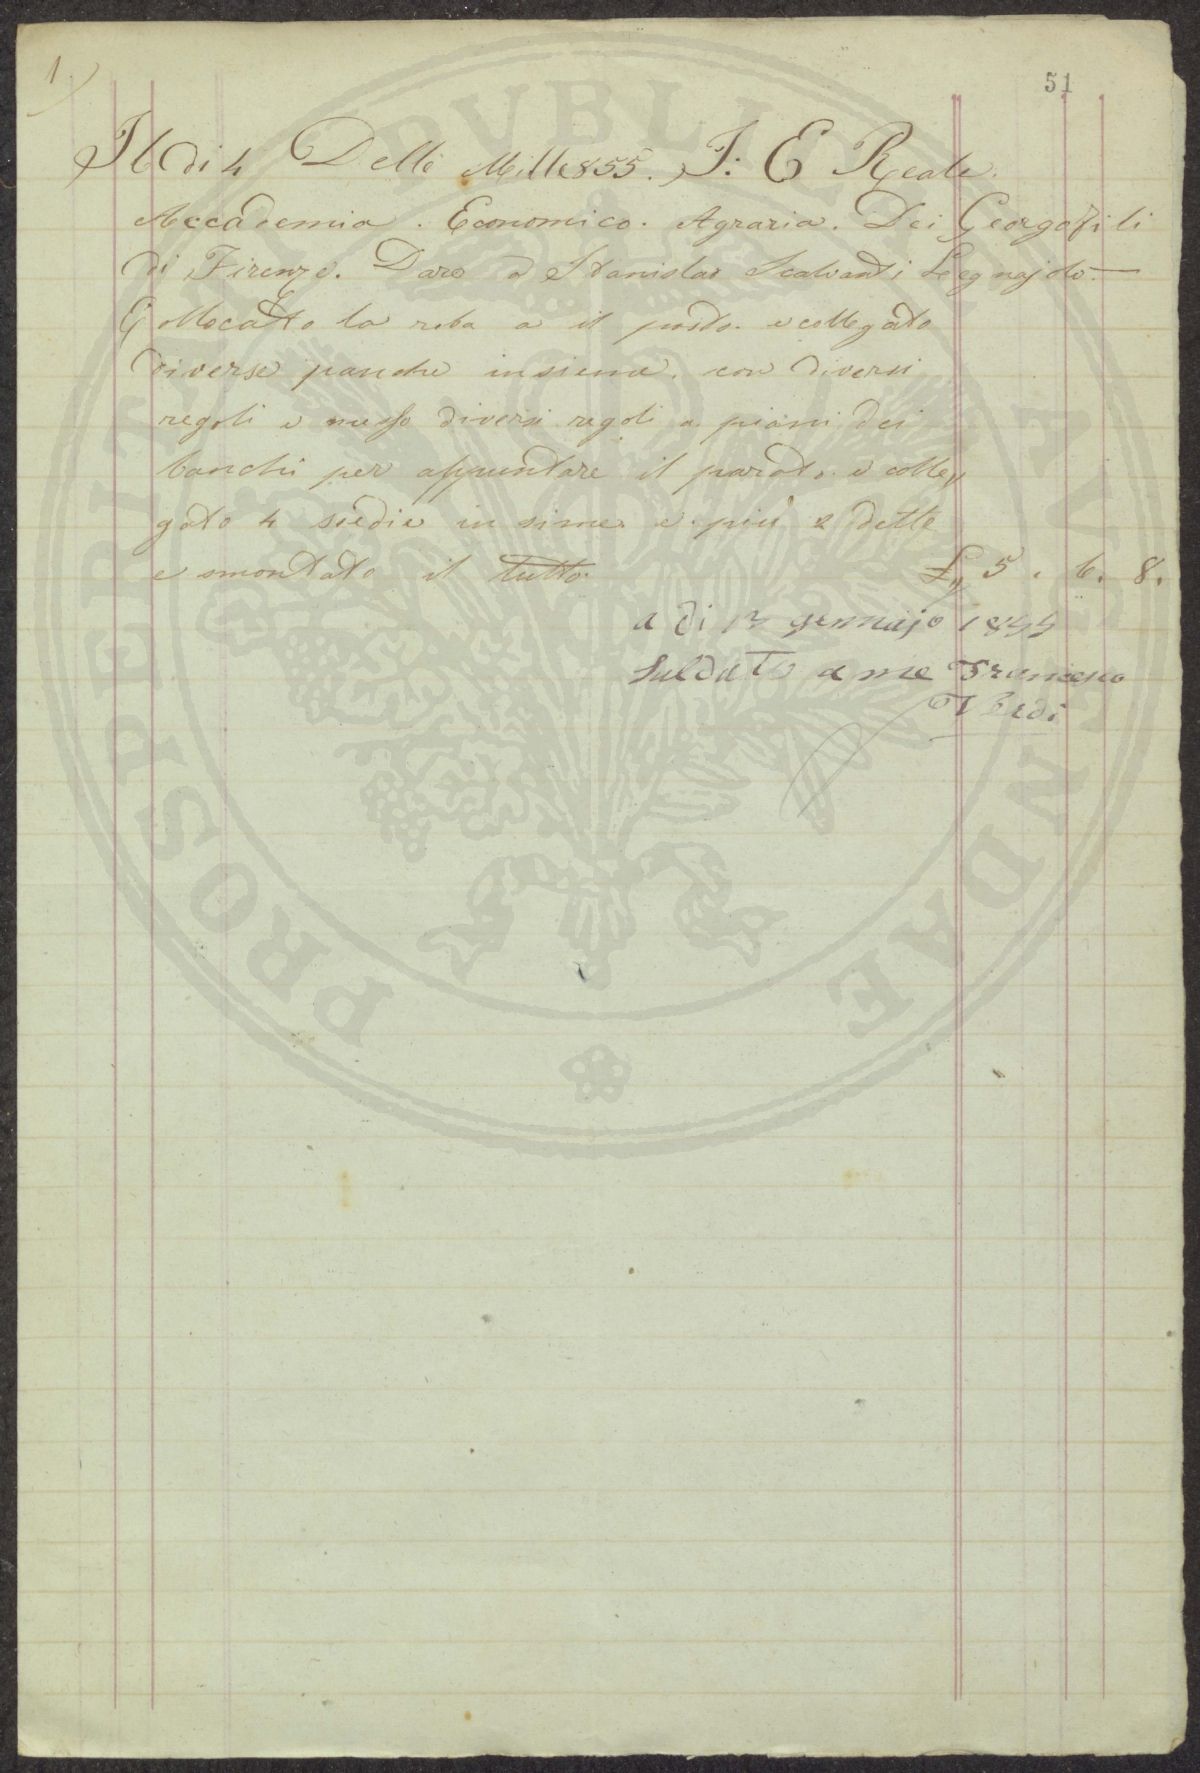 1
51
Il di 4 Dello Mille855. I: E Reale.
Accademia. Economico. Agraria. Dei Georgofili
di Firenze. Dare a Stanislao Scalvanti Legnajolo.—
Collocatto la roba a il posto. e collegato
diverse panche insieme. con diversi
regoli e messo diversi regoli a piani dei
banchi per appuntare il parato. e colle„
gato 4 sedie in sime. e più 2 dette
e smontato il tutto. £„ 5. 6. 8.
a di gennajo 1855
Saldato a me Francesco
PROSPERITATI PVBLICAE AVGENDAE